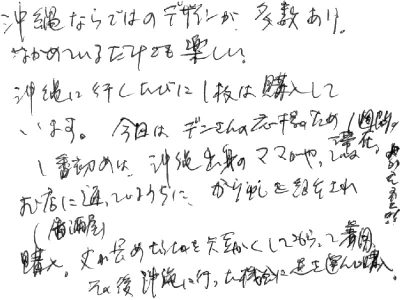 沖縄ならではのデザインが多数あり。
ながめているだけでも楽しい。
沖縄に行くたびに1枚は購入して
います。今回は デンさんの応援のため 1週間
1番初めは、沖縄出身のママがやっている
お店に通っているうちに、かりゆしを
(居酒屋)
購入。丈が長め 短かくしてもらって着用。
その後沖縄に行った機会に 選んで購入。